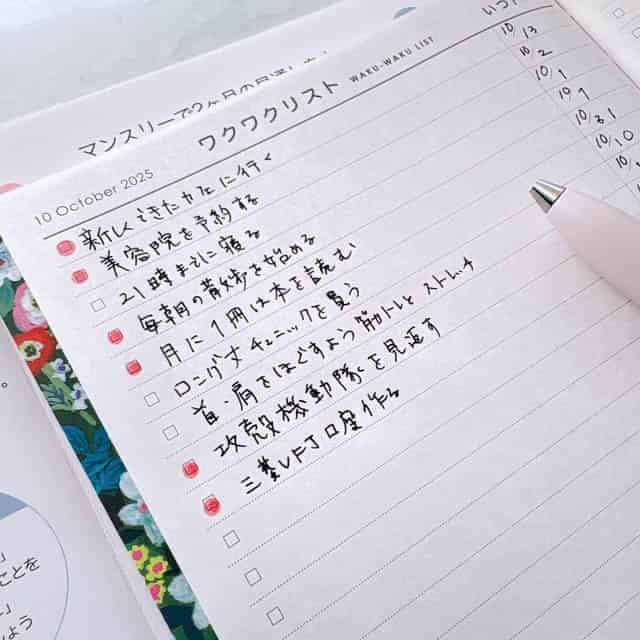 マンスリーで2ヶ月の
ワクワクリスト WAKU-WAKU LIST
いつ
10 October 2025
新しくできたカフェに行く 10/13
美容院を予約する 10/2
21時までに寝る 10/1
毎朝の散歩を始める 10/7
月に1冊は本を読む 10/31
ロング丈チュニックを買う 10/10
首・肩をほぐすよう筋トレとストレッチ
攻殻機動隊を見返す
三菱UFJ口座作る
ことを
しょう